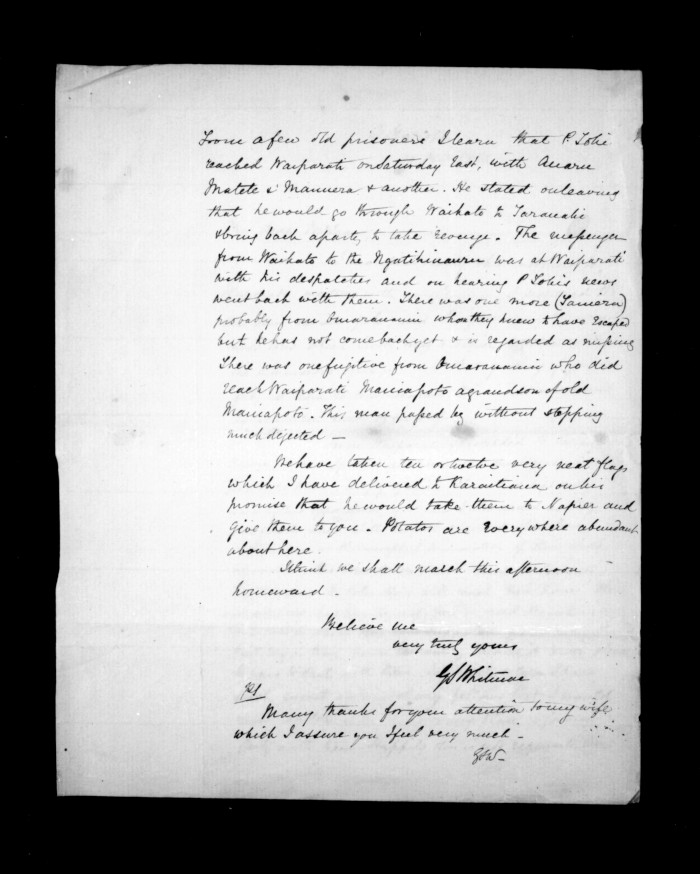 From a few old prisoners I learn that P. Tohi
reached Waiparati on Saturday last, with Anaru
Matete & Mannera & another. He stated on leaving
that he would go through Waikato to Taranaki
& bring back a party to take revenge. The messenger
from Waikato to the Ngatihinauru was at Waiparati
with his despatches and on hearing P Tohi's news
went back with them. There was one more (Tamiera)
probably from Omaranamu whom they knew to have Escaped
but he has not come back yet & is regarded as missing
There was one fugitive from Omaranamu who did
reach Waiparati Maniapoto a grandson of old
Maniapoto. This man passed by without stopping
much dejected —
We have taken ten or twelve very neat flags
which I have delivered to Karaitiana on his
promise that he would take them to Napier and
give them to you. Potatos are Everywhere abundant
about here.
I think we shall march this afternoon
homeward.
Believe me
very truly yours
GS Whitmore
PS
Many thanks for your attention to my wife
which I assure you I feel very much.
GSW.